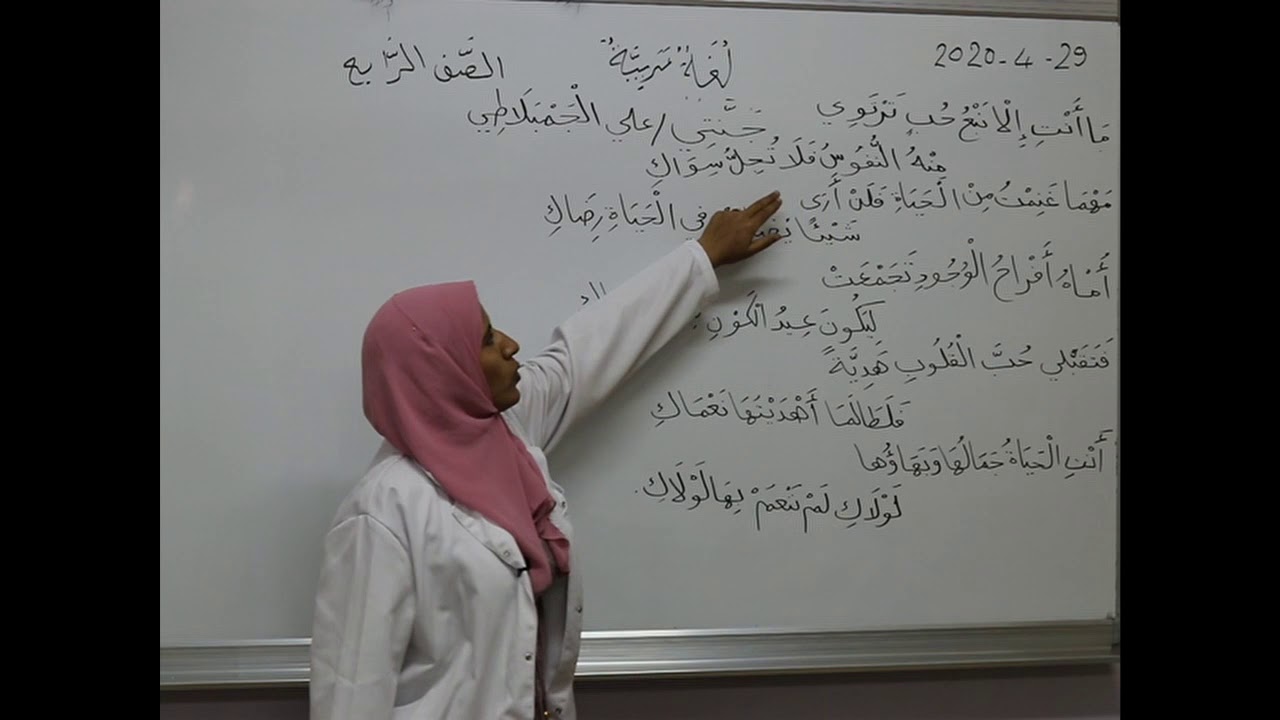 29-4-2020
لُغَةٌ عَرَبِيَّةٌ
الصَّف الرَّابع
جَنَّتِي / علي الْجَمْبَلَاطِي
مَا أَنْتِ إِلَّا نَبْعُ حُبٍ تَرْتَوِي
مِنْهُ النُّفُوسُ فَلَا تُحِلُّ سِوَاكِ
مَهْمَا غَنِمْتُ مِنْ الْحَيَاةِ فَلَنْ أَرَى
شَيْئًا فِي الْحَيَاةِ رِضَاكِ
أُمَّاهُ أَفْرَاحُ الْوُجُودِ تَجَمَّعَتْ
لِيَكُونَ عِيدُ الْكَوْنِ
فَتَقَبَّلي حُبَّ الْقُلُوبِ هَدِيَّةً
فَلَطَالَمَا أَهْدَيْتُهَا نَعْمَاكِ
أَنْتِ الْحَيَاةُ جَمَالُهَا وَبَهَاؤُها
لَوْلَاكِ لَمْ نَنْعَمْ بِهَا لَوْلَاكِ.